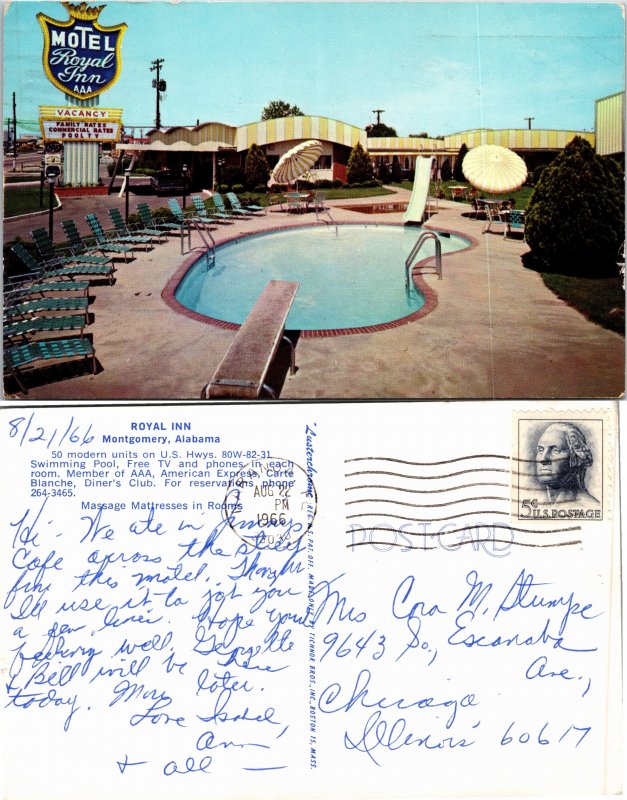 MOTEL
Royal
Inn
AAA
VACANCY
FAMILY RATES
COMMERCIAL RATES
POOL TV
8/21/66
ROYAL INN
Montgomery, Alabama
50 modern units on U.S. Hwys. 80W-82-31
Swimming Pool, Free TV and phones in each
room. Member of AAA, American Express, Carte
Blanche, Diner's Club. For reservations phone
264-3465.
Massage Mattresses in Rooms
Hi - We ate in
Cafe across the street
from this motel. Thought
I'll use it to jot you
a few lines. Hope you're
feeling well. Georgette
& Bill will be there
today. More later.
Love Isabel,
Ann
& all —
Lusterchrome
REG. U.S. PAT. OFF. MADE ONLY BY TICHNOR BROS., INC., BOSTON 15, MASS.
AUG 22
PM
1966
5¢ U.S. POSTAGE
POST CARD
Mrs Cora M. Stumpe
9643 So, Escanaba
Ave.,
Chicago
Illinois 60617